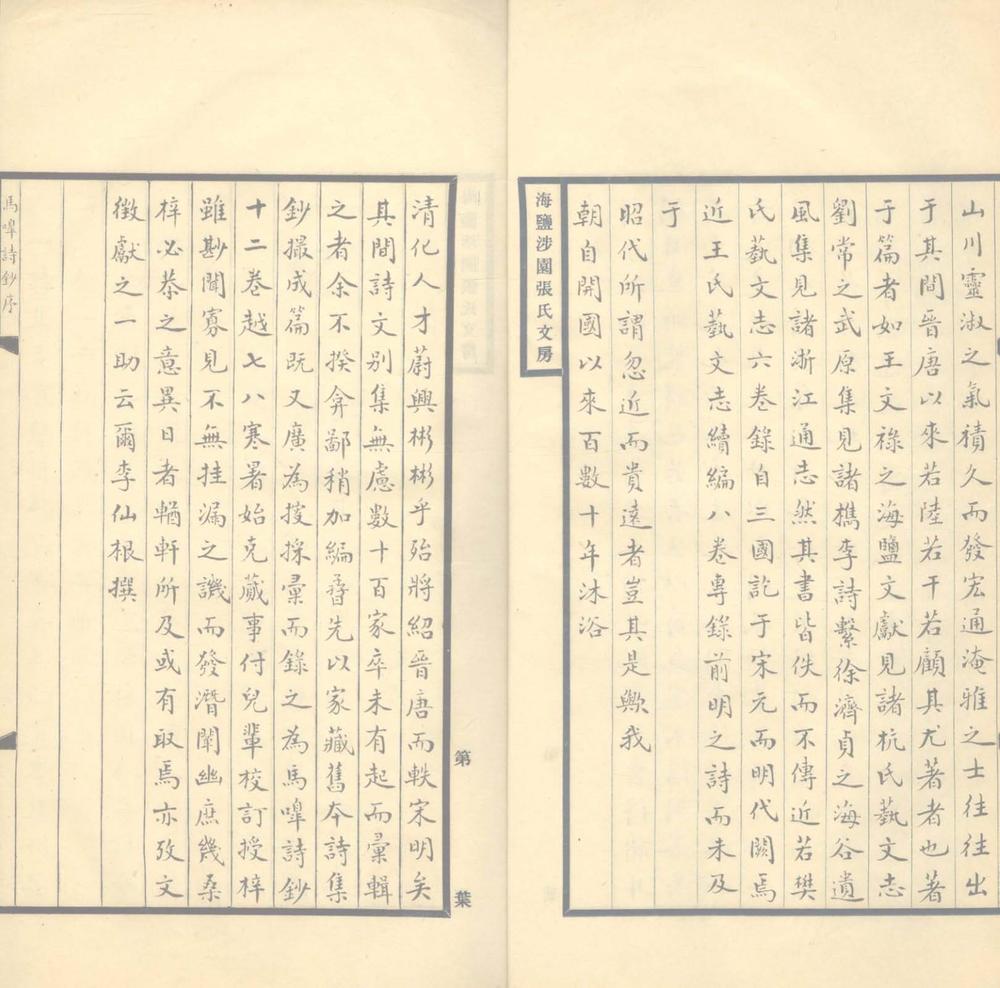 山川靈淑之氣積久而發宏通淹雅之士往往出
于其間晉唐以來若陸若干若顧其尤著者也著
于篇者如王文祿之海鹽文獻見諸杭氏藝文志
劉常之武原集見諸檇李詩繫徐濟貞之海谷遺
風集見諸浙江通志然其書皆佚而不傳近若樊
氏藝文志六卷錄自三國訖于宋元而明代闕焉
近王氏藝文志續編八卷專錄前明之詩而未及
于
昭代所謂忽近而貴遠者豈其是歟我
朝自開國以來百數十年沐浴
海鹽涉園張氏文房
清化人才蔚興彬彬乎殆將紹晉唐而軼宋明矣
其間詩文別集無慮數十百家卒未有起而彙輯
之者余不揆弇鄙稍加編番先以家藏舊本詩集
鈔撮成篇既又廣為搜採彙而錄之為馬嘷詩鈔
十二卷越七八寒暑始克蕆事付兒輩校訂授梓
雖尠聞寡見不無挂漏之譏而發潛闡幽庶幾桑
梓必恭之意異日者輶軒所及或有取焉亦攷文
徵獻之一助云爾李仙根撰
第 葉
馬嘷詩鈔序